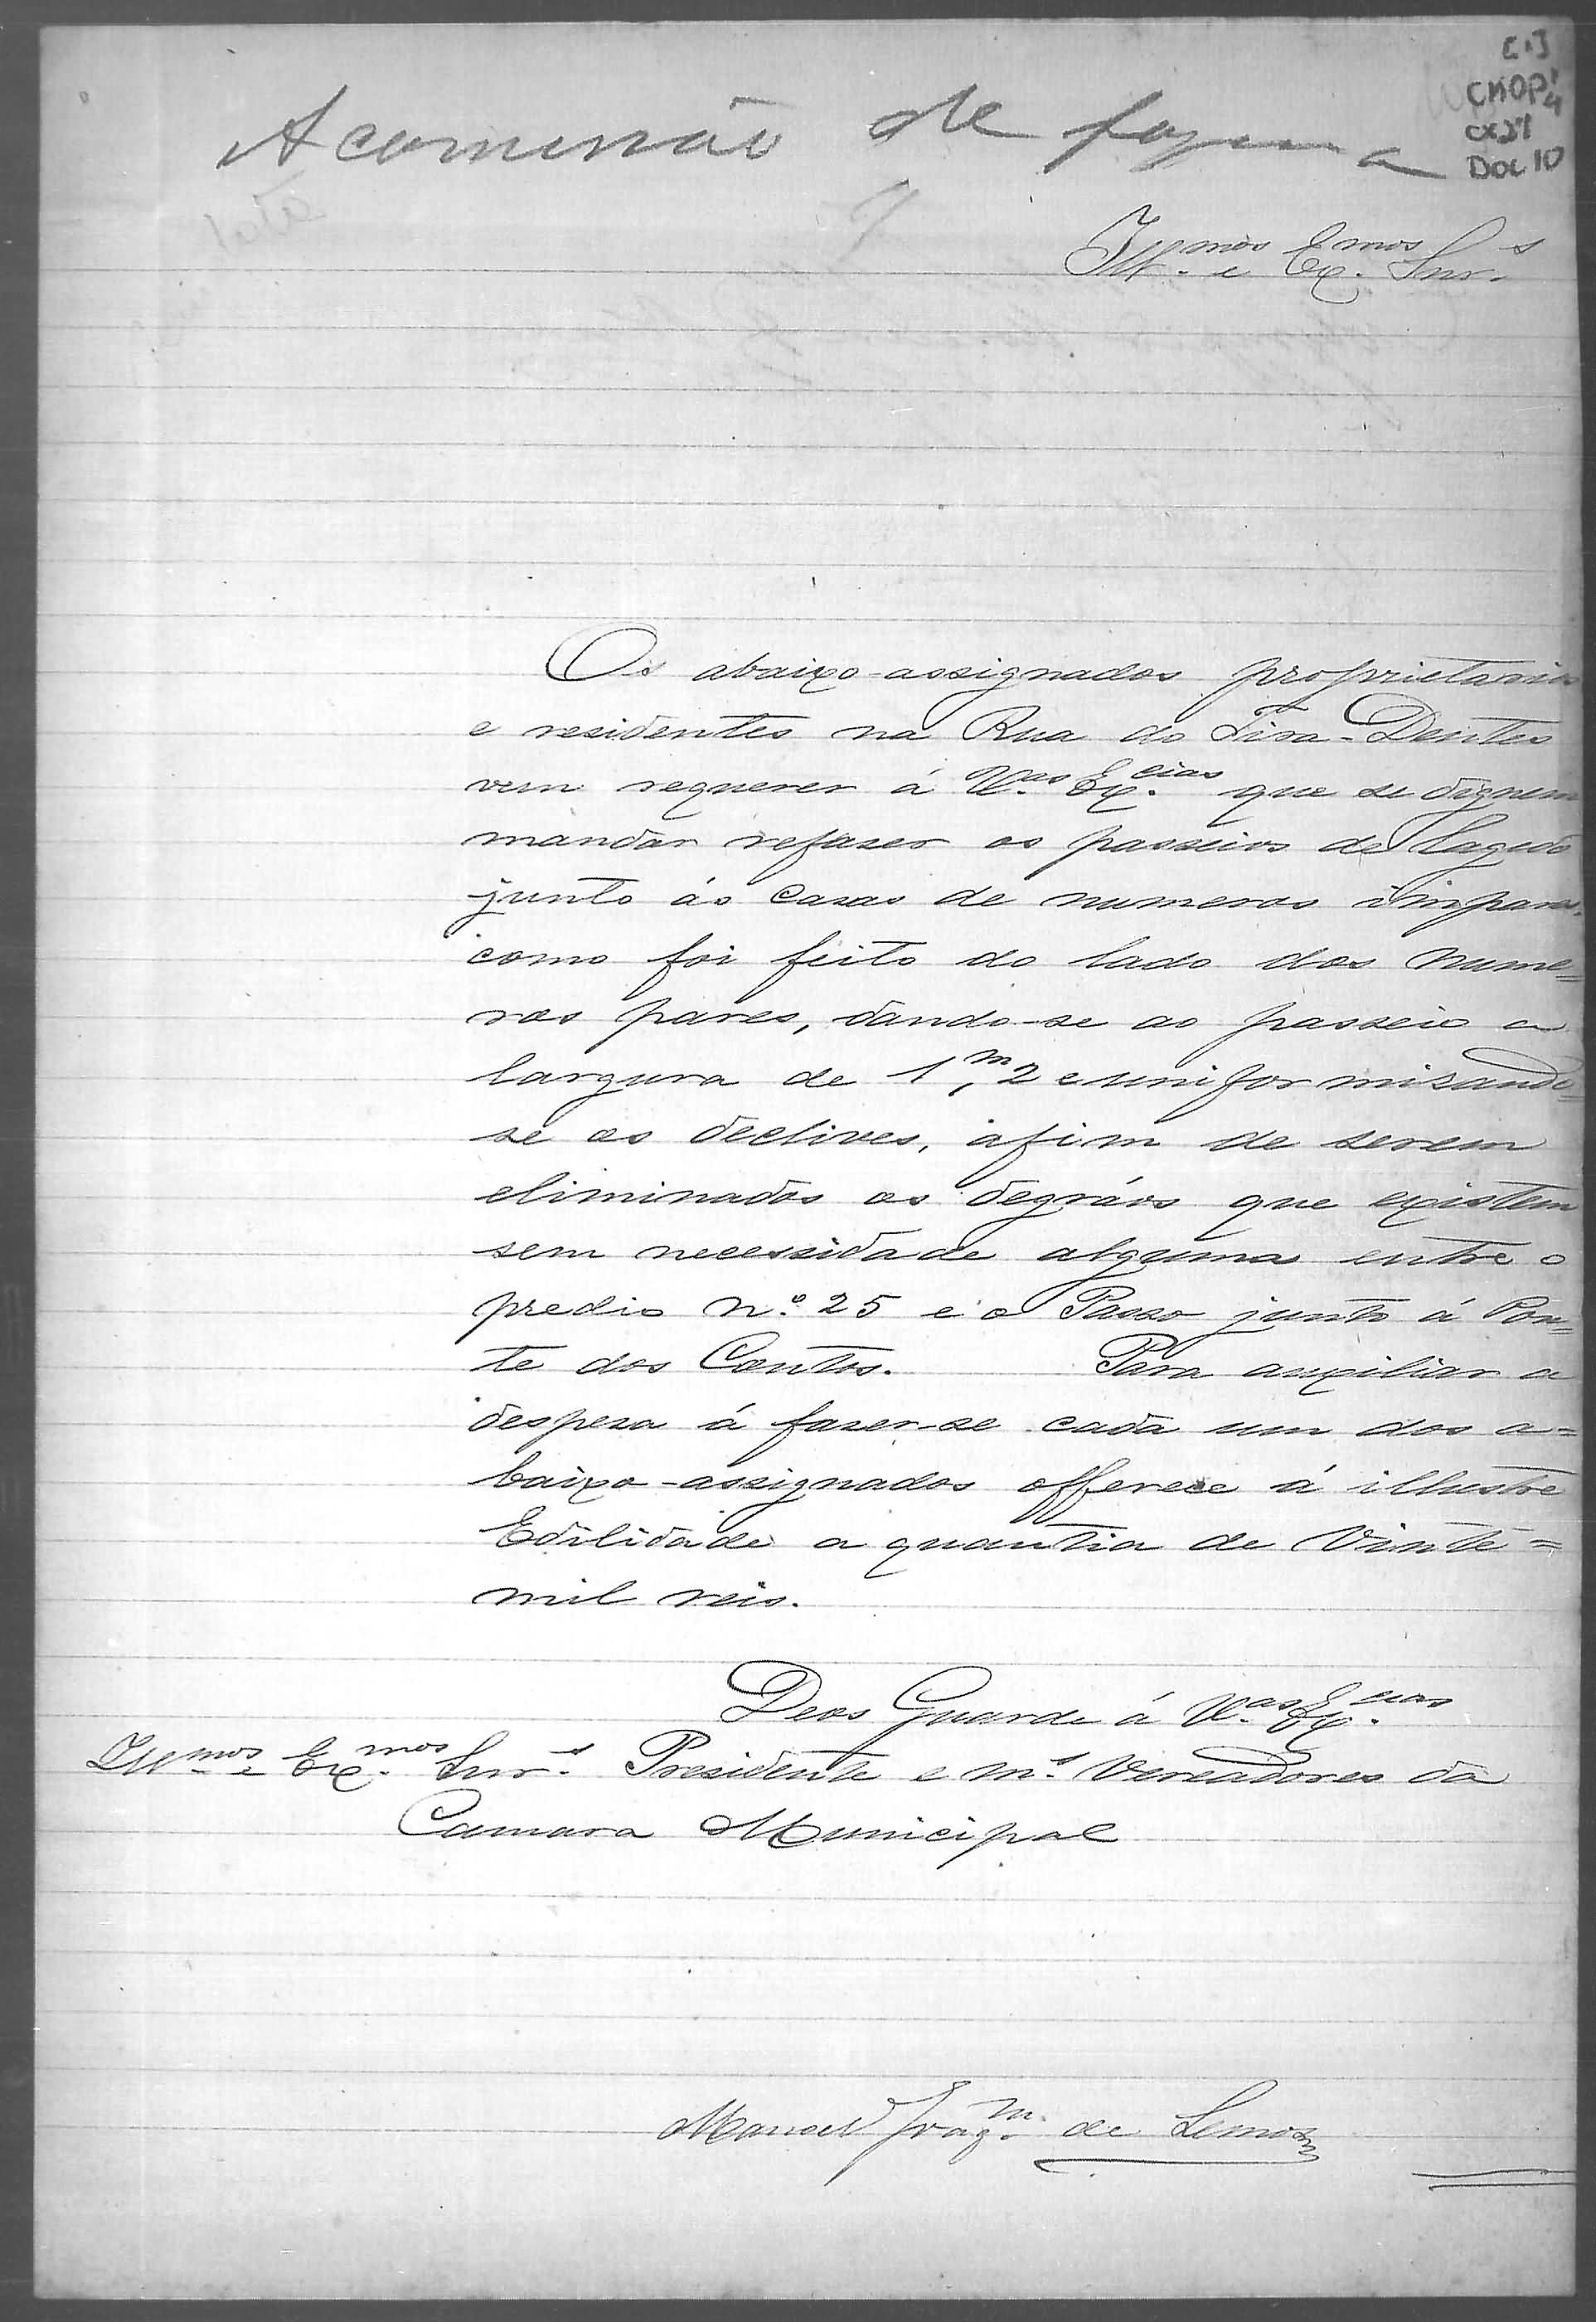 [1]
CMOP
cx 21
Doc 10
A comissão de fazenda
Ill.mos e Ex.mos Snr.s
Os abaixo-assignados proprietarios
e residentes na Rua do Tira-Dentes
vem requerer á V.as Ex.cias que se dignem
mandar refazer os passeios de lagedo
junto ás casas de numeros impares.
como foi feito do lado dos nume=
ros pares, dando-se ao passeio a
largura de 1,m2 e uniformisando=
se os declives, afim de serem
eliminados os degráos que existem
sem necessidade alguma entre o
predio n.º 25 e o Passo junto á Pon=
te dos Contos. Para auxiliar a
despesa á fazer-se cada um dos a=
baixo-assignados offerece á illustre
Edilidade a quantia de Vinte=
mil reis.
Deos Guarde á V.as Ex.cias
Ill.mos e Ex.mos Snr.s Presidente e m.s Vereadores da
Camara Municipal
Manoel Joaq.m de Lemos